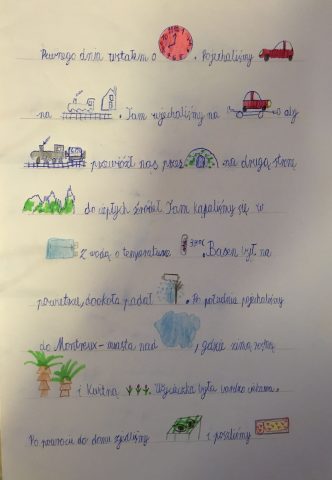 Pewnego dnia wstałem o . Pojechaliśmy
na . Tam wjechaliśmy na aby
przewiózł nas przez na drugą stronę
do ciepłych źródeł. Tam kąpaliśmy się w
z wodą o temperaturze 33°C. Basen był na
powietrzu, dookoła padał . Po południu pojechaliśmy
do Montreux - miasta nad , gdzie zimą rosną
i kwitną . Wycieczka była bardzo ciekawa.
Po powrocie do domu zjedliśmy i poszliśmy